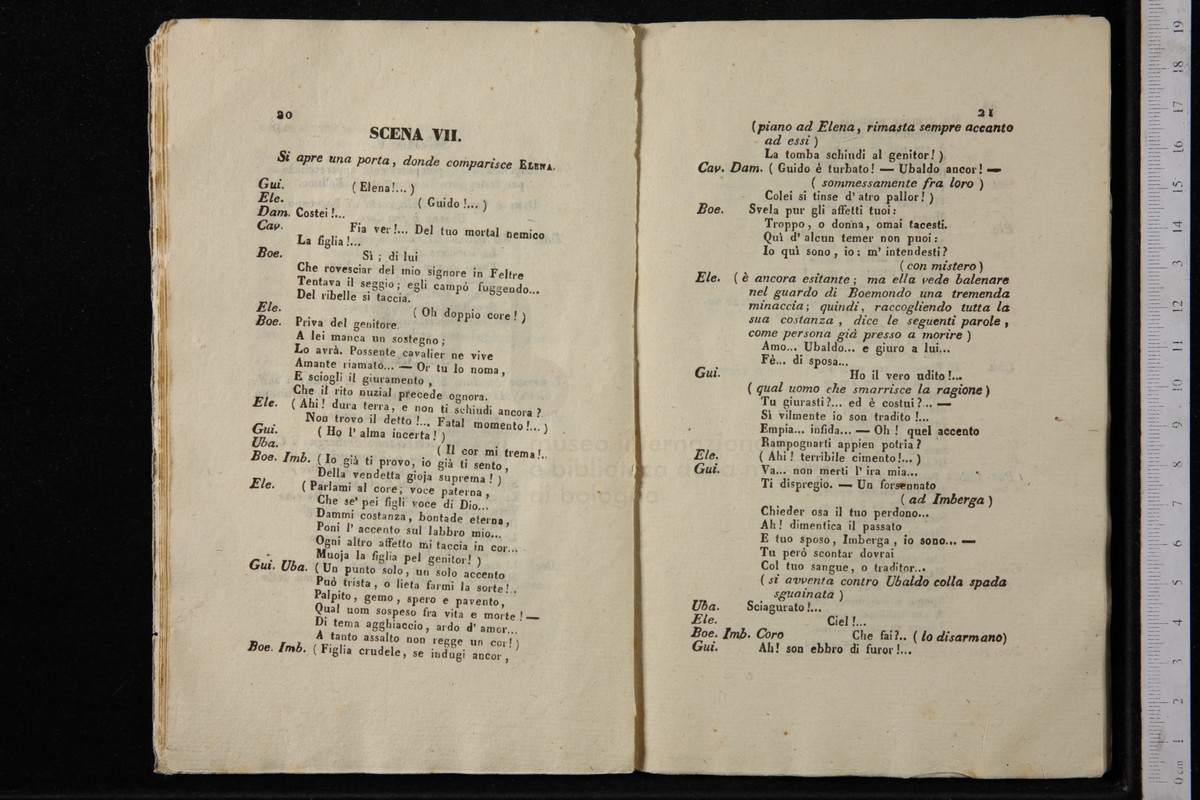 20
SCENA VII.
Si apre una porta, donde comparisce ELENA.
Gui. (Elena!...)
Ele. ( Guido !... )
Dam. Costei !...
Cav. Fia ver !... Del tuo mortal nemico
La figlia !...
Boe. Sì ; di lui
Che rovesciar del mio signore in Feltre
Tentava il seggio ; egli campò fuggendo...
Del ribelle si taccia.
Ele. ( Oh doppio core ! )
Boe. Priva del genitore
A lei manca un sostegno ;
Lo avrà. Possente cavalier ne vive
Amante riamato... — Or tu lo noma,
E sciogli il giuramento ,
Che il rito nuzial precede ognora.
Ele. ( Ahi ! dura terra, e non ti schiudi ancora ?
Non trovo il detto !... Fatal momento !... )
Gui. ( Ho l' alma incerta ! )
Uba. ( Il cor mi trema !..
Boe. Imb. ( Io già ti provo, io già ti sento ,
Della vendetta gioja suprema ! )
Ele. ( Parlami al core ; voce paterna ,
Che se' pei figli voce di Dio...
Dammi costanza, bontade eterna,
Poni l' accento sul labbro mio...
Ogni altro affetto mi taccia in cor...
Muoja la figlia pel genitor! )
Gui. Uba. ( Un punto solo, un solo accento
Può trista, o lieta farmi la sorte! .
Palpito, gemo , spero e pavento,
Qual uom sospeso fra vita e morte ! —
Di tema agghiaccio , ardo d' amor...
A tanto assalto non regge un cor!)
Boe. Imb. ( Figlia crudele, se indugi ancor ,
21
(piano ad Elena, rimasta sempre accanto
ad essi )
La tomba schiudi al genitor! )
Cav. Dam. ( Guido è turbato! — Ubaldo ancor! —
( sommessamente fra loro )
Colei si tinse d' atro pallor! )
Boe. Svela pur gli affetti tuoi :
Troppo, o donna, omai tacesti.
Quì d' alcun temer non puoi :
Io quì sono , io : m' intendesti ?
( con mistero )
Ele. ( è ancora esitante ; ma ella vede balenare
nel guardo di Boemondo una tremenda
minaccia ; quindi, raccogliendo tutta la
sua costanza , dice le seguenti parole ,
come persona già presso a morire )
Amo... Ubaldo... e giuro a lui...
Fè... di sposa...
Gui. Ho il vero udito !...
( qual uomo che smarrisce la ragione )
Tu giurasti ?... ed è costui ?... —
Sì vilmente io son tradito !...
Empia... infida... — Oh ! quel accento
Rampognarti appien potria ?
Ele. ( Ahi ! terribile cimento !... )
Gui. Va... non merti l' ira mia...
Ti dispregio. — Un forsennato
( ad Imberga )
Chieder osa il tuo perdono...
Ah! dimentica il passato
E tuo sposo, Imberga , io sono... —
Tu però scontar dovrai
Col tuo sangue, o traditor...
( si avventa contro Ubaldo colla spada
sguainata )
Uba. Sciagurato !...
Ele. Ciel !...
Boe. Imb. Coro Che fai ?.. ( lo disarmano)
Gui. Ah! son ebbro di furor !...